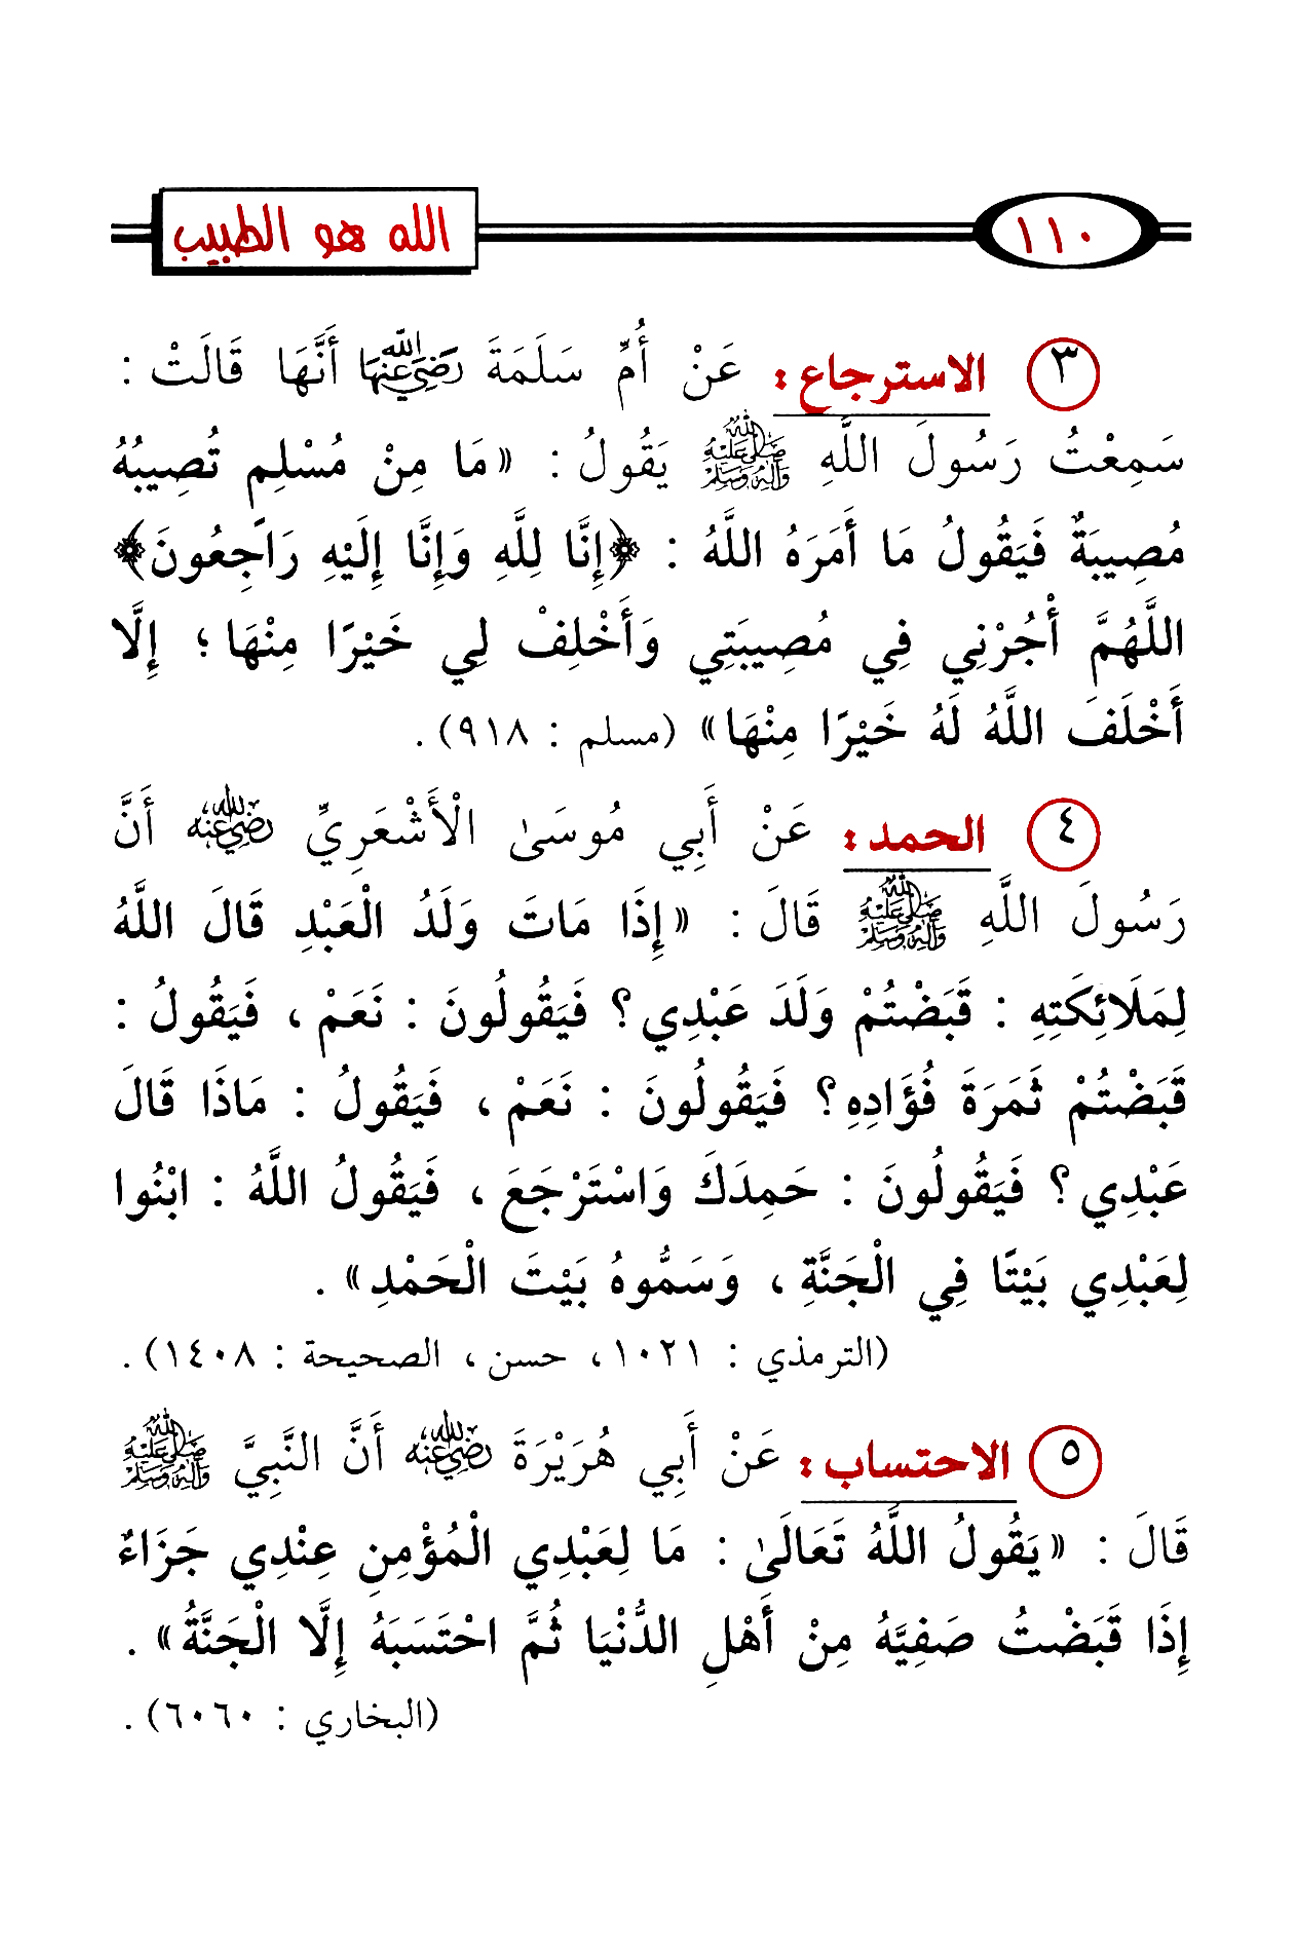 ١١٠ الله هو الطبيب
٣ الاسترجاع: عَنْ أُمِّ سَلَمَةَ رَضِيَ اللَّهُ عَنْهَا أَنَّهَا قَالَتْ :
سَمِعْتُ رَسُولَ اللَّهِ ﷺ يَقُولُ : «مَا مِنْ مُسْلِمٍ تُصِيبُهُ
مُصِيبَةٌ فَيَقُولُ مَا أَمَرَهُ اللَّهُ : ﴿إِنَّا لِلَّهِ وَإِنَّا إِلَيْهِ رَاجِعُونَ﴾
اللَّهُمَّ أْجُرْنِي فِي مُصِيبَتِي وَأَخْلِفْ لِي خَيْرًا مِنْهَا ؛ إِلَّا
أَخْلَفَ اللَّهُ لَهُ خَيْرًا مِنْهَا» (مسلم : ٩١٨) .
٤ الحمد: عَنْ أَبِي مُوسَىٰ الْأَشْعَرِيِّ رَضِيَ اللَّهُ عَنْهُ أَنَّ
رَسُولَ اللَّهِ ﷺ قَالَ : «إِذَا مَاتَ وَلَدُ الْعَبْدِ قَالَ اللَّهُ
لِمَلَائِكَتِهِ : قَبَضْتُمْ وَلَدَ عَبْدِي ؟ فَيَقُولُونَ : نَعَمْ ، فَيَقُولُ :
قَبَضْتُمْ ثَمَرَةَ فُؤَادِهِ ؟ فَيَقُولُونَ : نَعَمْ ، فَيَقُولُ : مَاذَا قَالَ
عَبْدِي ؟ فَيَقُولُونَ : حَمِدَكَ وَاسْتَرْجَعَ ، فَيَقُولُ اللَّهُ : ابْنُوا
لِعَبْدِي بَيْتًا فِي الْجَنَّةِ ، وَسَمُّوهُ بَيْتَ الْحَمْدِ» .
(الترمذي : ١٠٢١ ، حسن ، الصحيحة : ١٤٠٨) .
٥ الاحتساب: عَنْ أَبِي هُرَيْرَةَ رَضِيَ اللَّهُ عَنْهُ أَنَّ النَّبِيَّ ﷺ
قَالَ : «يَقُولُ اللَّهُ تَعَالَىٰ : مَا لِعَبْدِي الْمُؤْمِنِ عِنْدِي جَزَاءٌ
إِذَا قَبَضْتُ صَفِيَّهُ مِنْ أَهْلِ الدُّنْيَا ثُمَّ احْتَسَبَهُ إِلَّا الْجَنَّةُ» .
(البخاري : ٦٠٦٠) .